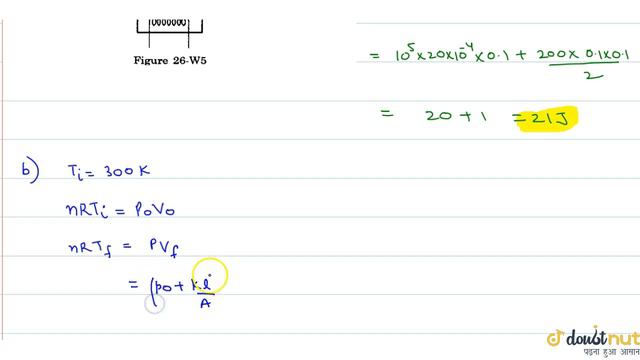 Figure 26-W5
= 10⁵ × 20 × 10⁻⁴ × 0.1 + 200 × 0.1 × 0.1 / 2
= 20 + 1 = 21 J
b) Ti = 300 K
nRTi = P₀V₀
nRTf = PVf
= (p₀ + kl / A
doubtnut
पढ़ना हुआ आसान